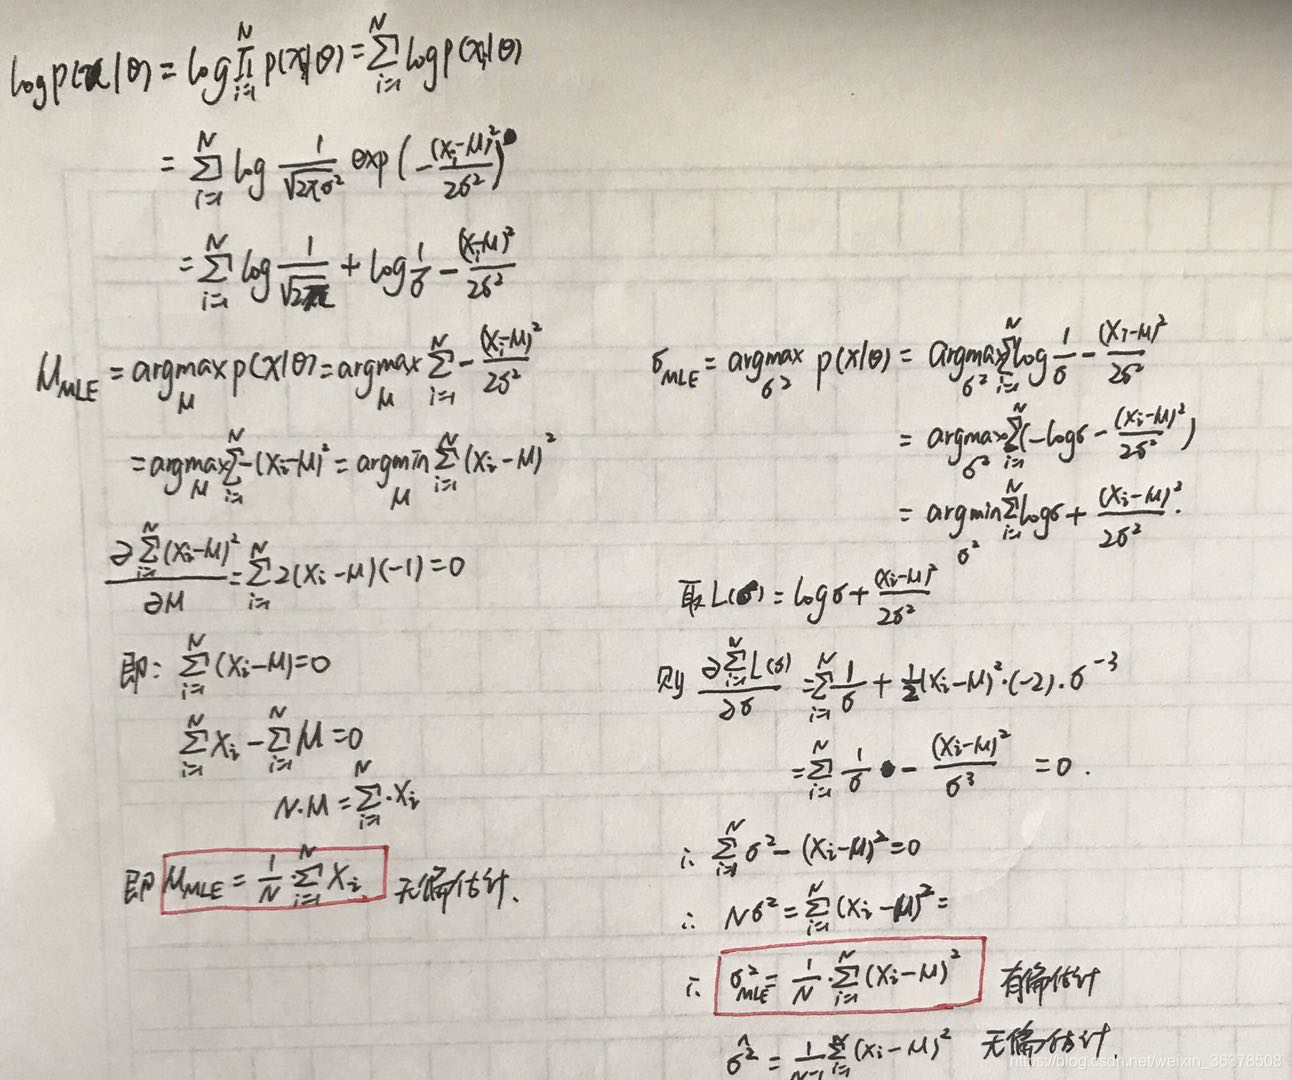 log p(x|θ) = log ∏_{i=1}^{N} p(x_i|θ) = ∑_{i=1}^{N} log p(x_i|θ)
= ∑_{i=1}^{N} log \frac{1}{\sqrt{2πσ^2}} exp(-\frac{(x_i-μ)^2}{2σ^2})
= ∑_{i=1}^{N} log \frac{1}{\sqrt{2π}} + log \frac{1}{σ} - \frac{(x_i-μ)^2}{2σ^2}
μ_{MLE} = argmax_{μ} p(X|θ) = argmax_{μ} ∑_{i=1}^{N} -\frac{(x_i-μ)^2}{2σ^2}
= argmax_{μ} ∑_{i=1}^{N} -(x_i-μ)^2 = argmin_{μ} ∑_{i=1}^{N} (x_i-μ)^2
\frac{∂∑_{i=1}^{N}(x_i-μ)^2}{∂μ} = ∑_{i=1}^{N} 2(x_i-μ)(-1) = 0
即: ∑_{i=1}^{N} (x_i-μ)=0
∑_{i=1}^{N} x_i - ∑_{i=1}^{N} μ = 0
N·μ = ∑_{i=1}^{N} · x_i
即 μ_{MLE} = \frac{1}{N} · ∑_{i=1}^{N} x_i. 无偏估计.
σ_{MLE} = argmax_{σ^2} p(x|θ) = argmax_{σ^2} ∑_{i=1}^{N} log \frac{1}{σ} - \frac{(x_i-μ)^2}{2σ^2}
= argmax_{σ^2} ∑_{i=1}^{N} (-logσ - \frac{(x_i-μ)^2}{2σ^2})
= argmin_{σ^2} ∑_{i=1}^{N} logσ + \frac{(x_i-μ)^2}{2σ^2}.
取 L(σ) = logσ + \frac{(x_i-μ)^2}{2σ^2}
则 \frac{∂∑_{i=1}^{N} L(σ)}{∂σ} = ∑_{i=1}^{N} \frac{1}{σ} + \frac{1}{2}(x_i-μ)^2·(-2)·σ^{-3}
= ∑_{i=1}^{N} \frac{1}{σ} - \frac{(x_i-μ)^2}{σ^3} = 0.
∴ ∑_{i=1}^{N} σ^2 - (x_i-μ)^2 = 0
∴ Nσ^2 = ∑_{i=1}^{N} (x_i-μ)^2 =
∴ σ^2_{MLE} = \frac{1}{N} · ∑_{i=1}^{N} (x_i-μ)^2 有偏估计
\hat{σ^2} = \frac{1}{N-1} ∑_{i=1}^{N} (x_i-μ)^2 无偏估计.
https://blog.csdn.net/weixin_36378508